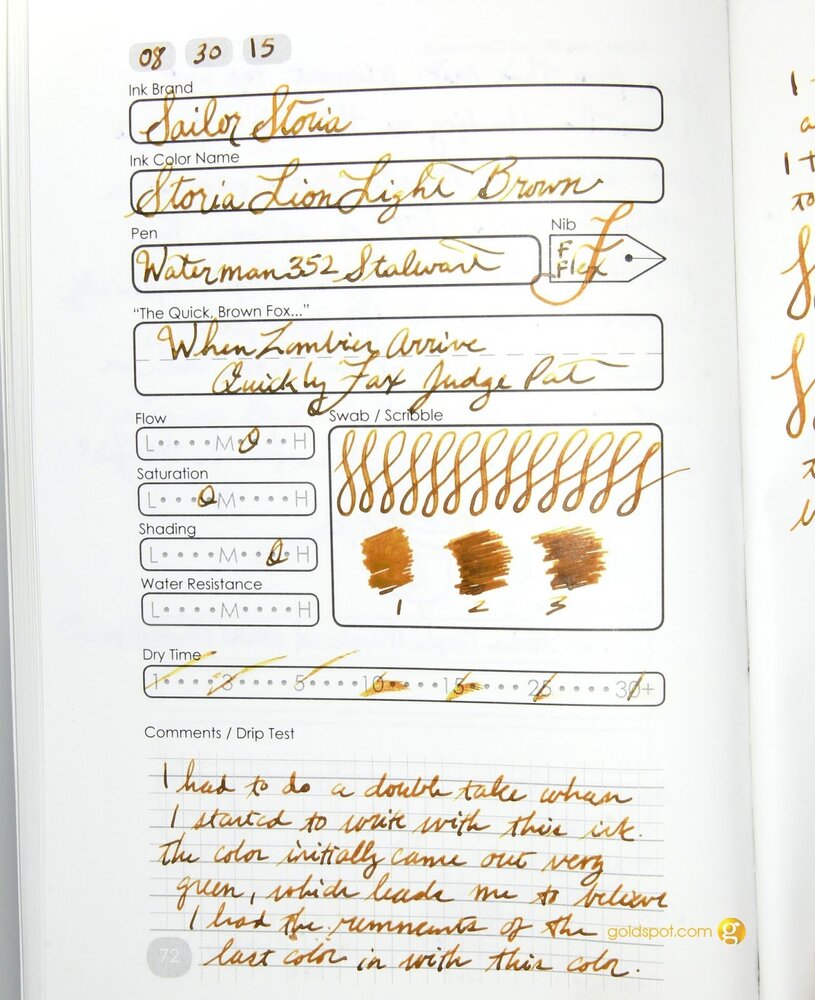 08 30 15
Ink Brand
Sailor Storia
Ink Color Name
Storia Lion Light Brown
Pen
Waterman 352 Stalwart
Nib
F
F Flex
"The Quick, Brown Fox..."
When Zombies Arrive
Quickly Fax Judge Pat
Flow
L M H
Swab / Scribble
Saturation
L M H
Shading
L M H
1 2 3
Water Resistance
L M H
Dry Time
1 3 5 10 15 25 30+
Comments / Drip Test
I had to do a double take when
I started to write with this ink.
The color initially came out very
green, which leads me to believe
I had the remnants of the
last color in with this color.
goldspot.com g
72